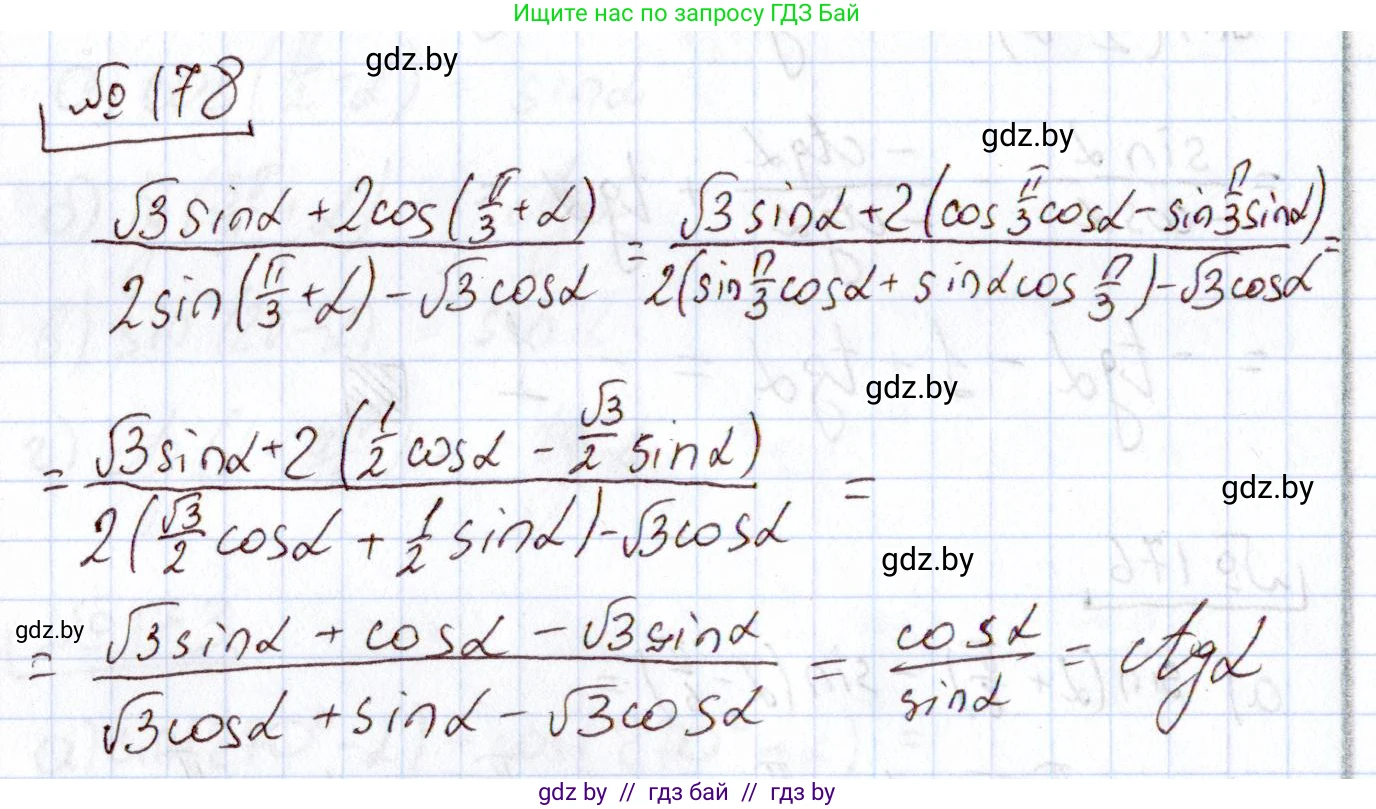 Ищите нас по запросу ГДЗ Бай
gdz.by
№ 178
gdz.by
(√3 sinα + 2cos(π/3 + α)) / (2sin(π/3 + α) - √3 cosα) = (√3 sinα + 2(cos π/3 cosα - sin π/3 sinα)) / (2(sin π/3 cosα + sinα cos π/3) - √3 cosα) =
gdz.by
= (√3 sinα + 2(1/2 cosα - √3/2 sinα)) / (2(√3/2 cosα + 1/2 sinα) - √3 cosα) =
gdz.by
gdz.by
gdz.by
= (√3 sinα + cosα - √3 sinα) / (√3 cosα + sinα - √3 cosα) = cosα / sinα = ctgα
gdz.by // гдз бай // гдз by